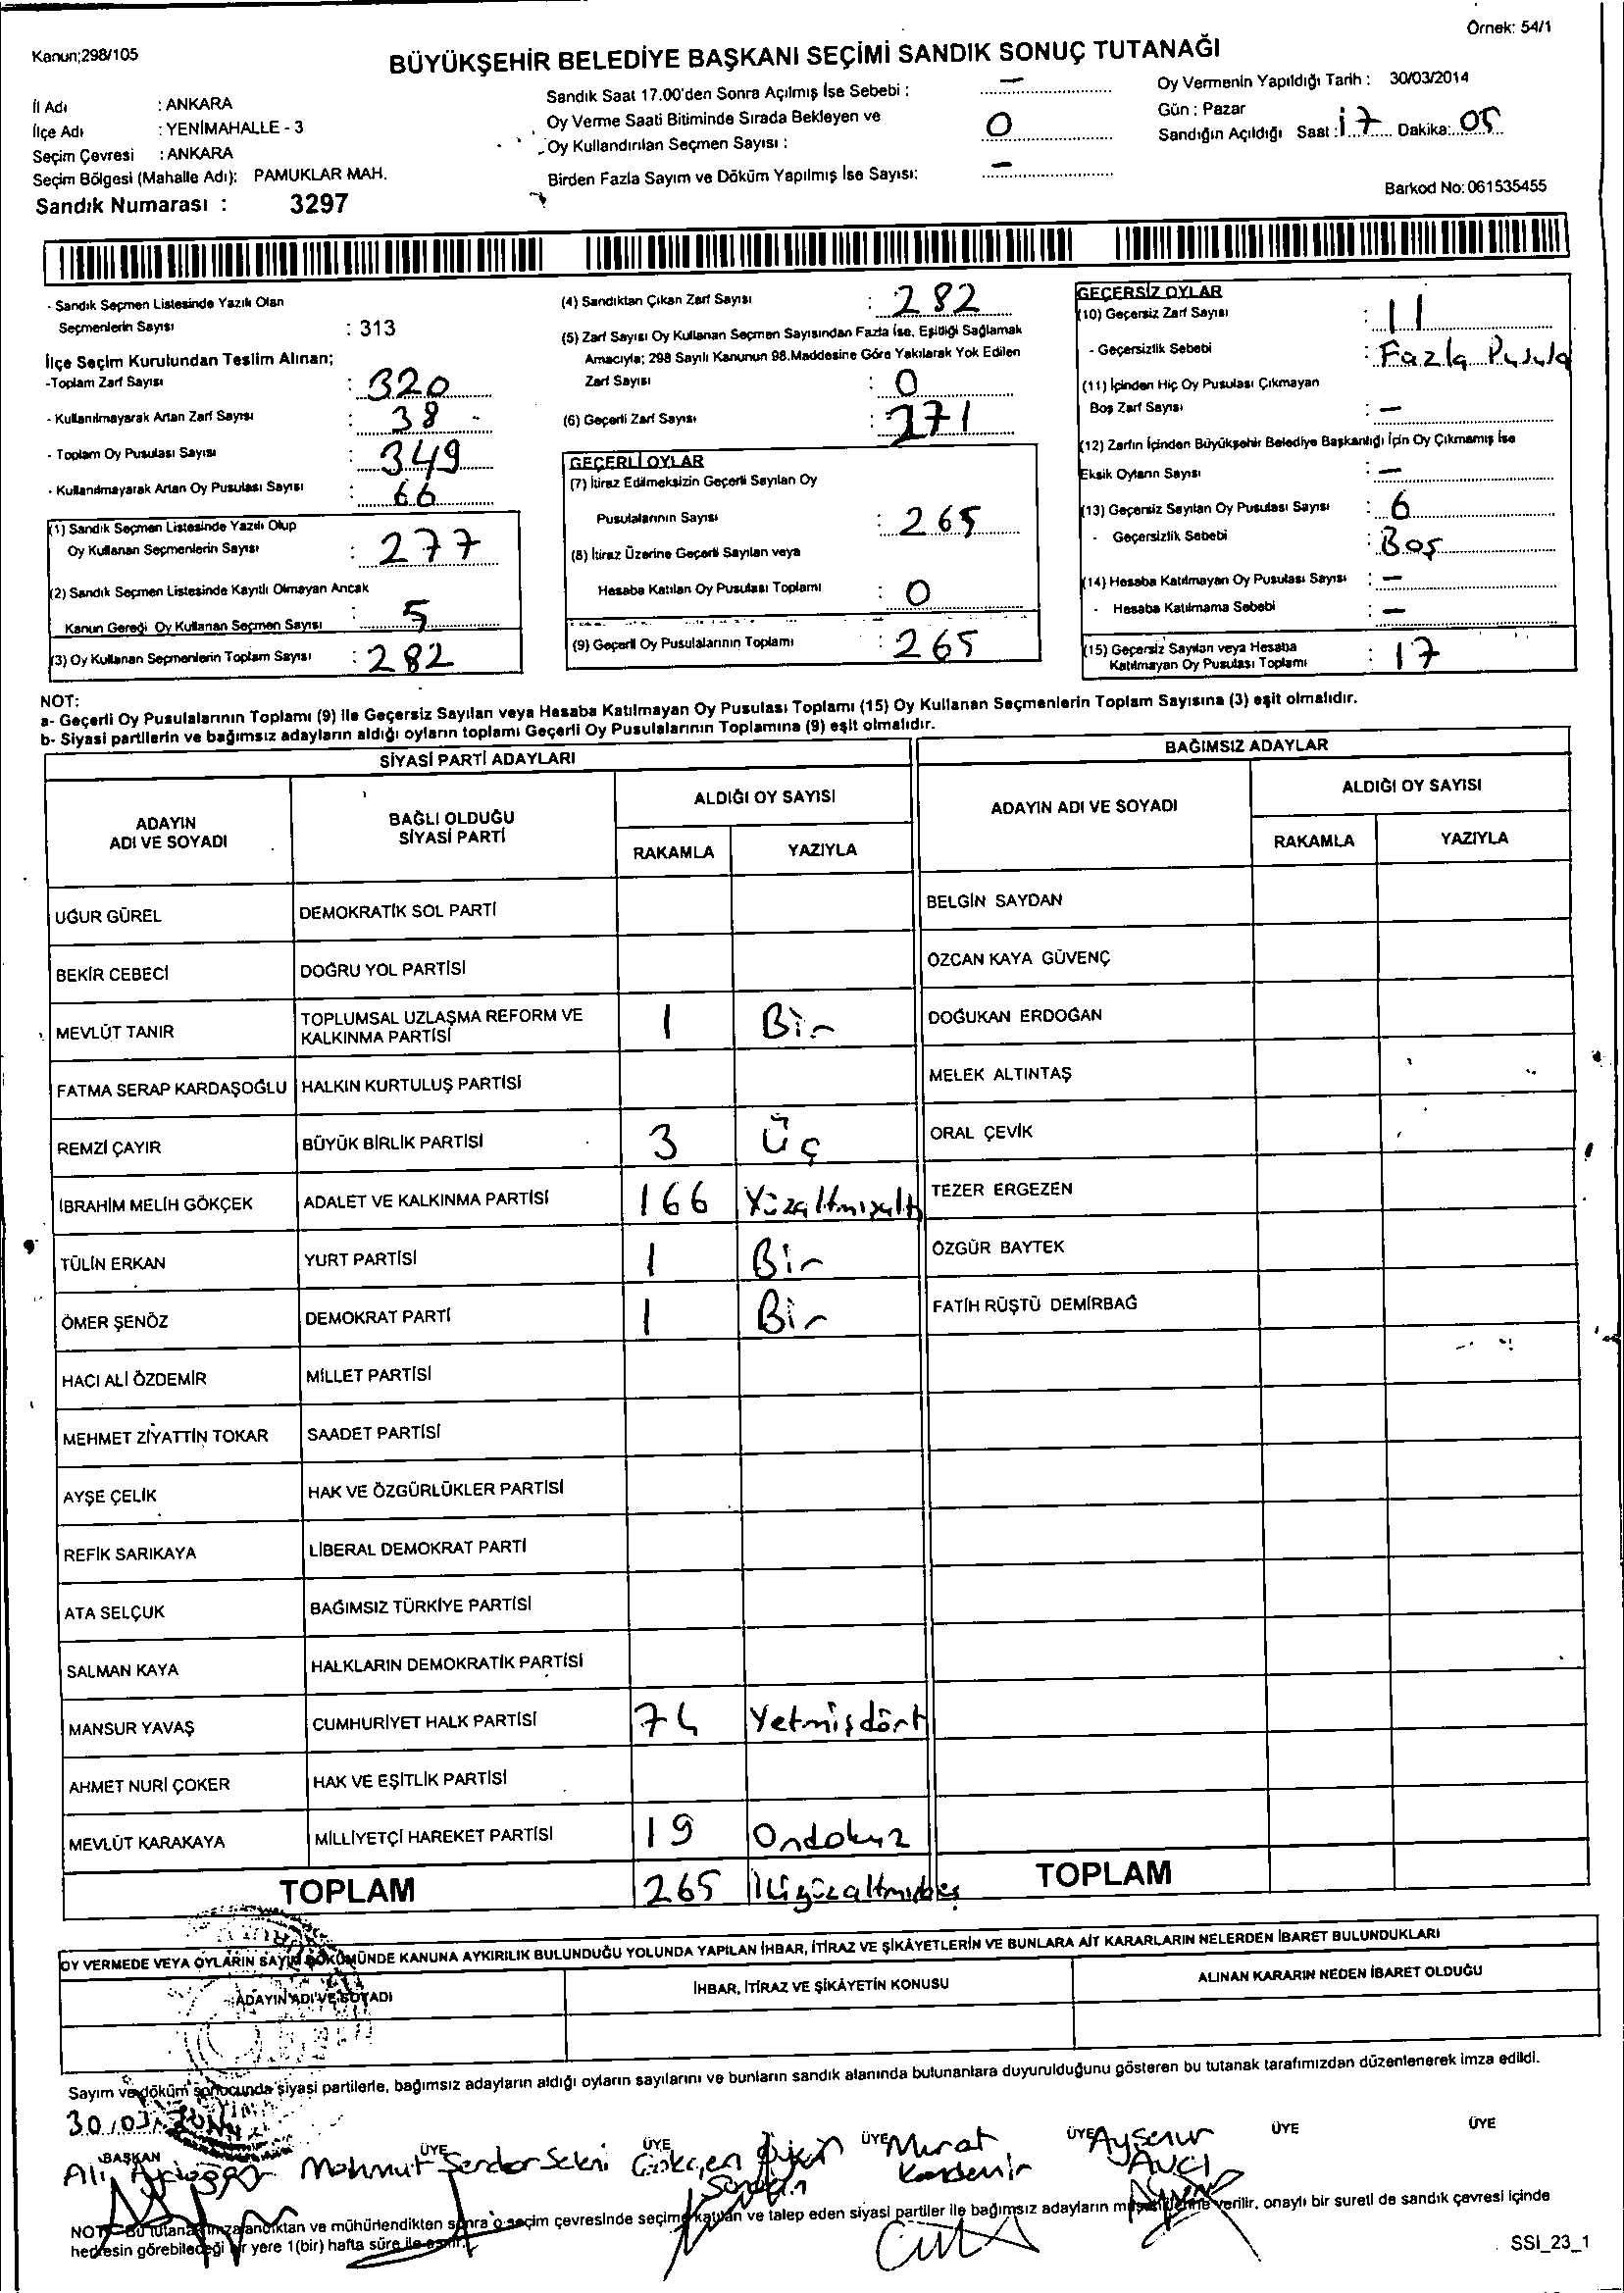 Örnek: 54/1
Kanun;298/105
BÜYÜKŞEHİR BELEDİYE BAŞKANI SEÇİMİ SANDIK SONUÇ TUTANAĞI
İl Adı : ANKARA
İlçe Adı : YENİMAHALLE - 3
Seçim Çevresi : ANKARA
Seçim Bölgesi (Mahalle Adı): PAMUKLAR MAH.
Sandık Numarası : 3297
Sandık Saat 17.00'den Sonra Açılmış İse Sebebi : —
Oy Verme Saati Bitiminde Sırada Bekleyen ve
Oy Kullandırılan Seçmen Sayısı : 0
Birden Fazla Sayım ve Döküm Yapılmış İse Sayısı: —
Oy Vermenin Yapıldığı Tarih : 30/03/2014
Gün : Pazar
Sandığın Açıldığı Saat : 17 Dakika: 05
Barkod No: 061535455
- Sandık Seçmen Listesinde Yazılı Olan
Seçmenlerin Sayısı : 313
İlçe Seçim Kurulundan Teslim Alınan;
-Toplam Zarf Sayısı : 320
- Kullanılmayarak Artan Zarf Sayısı : 38
- Toplam Oy Pusulası Sayısı : 349
- Kullanılmayarak Artan Oy Pusulası Sayısı : 66
(1) Sandık Seçmen Listesinde Yazılı Olup
Oy Kullanan Seçmenlerin Sayısı : 277
(2) Sandık Seçmen Listesinde Kayıtlı Olmayan Ancak
Kanun Gereği Oy Kullanan Seçmen Sayısı : 5
(3) Oy Kullanan Seçmenlerin Toplam Sayısı : 282
(4) Sandıktan Çıkan Zarf Sayısı : 282
(5) Zarf Sayısı Oy Kullanan Seçmen Sayısından Fazla İse, Eşitliği Sağlamak
Amacıyla; 298 Sayılı Kanunun 98.Maddesine Göre Yakılarak Yok Edilen
Zarf Sayısı : 0
(6) Geçerli Zarf Sayısı : 271
GEÇERLİ OYLAR
(7) İtiraz Edilmeksizin Geçerli Sayılan Oy
Pusulalarının Sayısı : 265
(8) İtiraz Üzerine Geçerli Sayılan veya
Hesaba Katılan Oy Pusulası Toplamı : 0
(9) Geçerli Oy Pusulalarının Toplamı : 265
GEÇERSİZ OYLAR
(10) Geçersiz Zarf Sayısı : 11
- Geçersizlik Sebebi : Fazla Pusula
(11) İçinden Hiç Oy Pusulası Çıkmayan
Boş Zarf Sayısı : —
(12) Zarfın İçinden Büyükşehir Belediye Başkanlığı İçin Oy Çıkmamış İse
Eksik Oyların Sayısı : —
(13) Geçersiz Sayılan Oy Pusulası Sayısı : 6
- Geçersizlik Sebebi : Boş
(14) Hesaba Katılmayan Oy Pusulası Sayısı : —
- Hesaba Katılmama Sebebi : —
(15) Geçersiz Sayılan veya Hesaba
Katılmayan Oy Pusulası Toplamı : 17
NOT:
a- Geçerli Oy Pusulalarının Toplamı (9) ile Geçersiz Sayılan veya Hesaba Katılmayan Oy Pusulası Toplamı (15) Oy Kullanan Seçmenlerin Toplam Sayısına (3) eşit olmalıdır.
b- Siyasi partilerin ve bağımsız adayların aldığı oyların toplamı Geçerli Oy Pusulalarının Toplamına (9) eşit olmalıdır.
SİYASİ PARTİ ADAYLARI
ADAYIN ADI VE SOYADI
BAĞLI OLDUĞU SİYASİ PARTİ
ALDIĞI OY SAYISI
RAKAMLA YAZIYLA
UĞUR GÜREL DEMOKRATİK SOL PARTİ
BEKİR CEBECİ DOĞRU YOL PARTİSİ
MEVLÜT TANIR TOPLUMSAL UZLAŞMA REFORM VE KALKINMA PARTİSİ 1 Bir
FATMA SERAP KARDAŞOĞLU HALKIN KURTULUŞ PARTİSİ
REMZİ ÇAYIR BÜYÜK BİRLİK PARTİSİ 3 Üç
İBRAHİM MELİH GÖKÇEK ADALET VE KALKINMA PARTİSİ 166 Yüzaltmışaltı
TÜLİN ERKAN YURT PARTİSİ 1 Bir
ÖMER ŞENÖZ DEMOKRAT PARTİ 1 Bir
HACI ALİ ÖZDEMİR MİLLET PARTİSİ
MEHMET ZİYATTİN TOKAR SAADET PARTİSİ
AYŞE ÇELİK HAK VE ÖZGÜRLÜKLER PARTİSİ
REFİK SARIKAYA LİBERAL DEMOKRAT PARTİ
ATA SELÇUK BAĞIMSIZ TÜRKİYE PARTİSİ
SALMAN KAYA HALKLARIN DEMOKRATİK PARTİSİ
MANSUR YAVAŞ CUMHURİYET HALK PARTİSİ 74 Yetmişdört
AHMET NURİ ÇOKER HAK VE EŞİTLİK PARTİSİ
MEVLÜT KARAKAYA MİLLİYETÇİ HAREKET PARTİSİ 19 Ondokuz
TOPLAM 265 İkiyüzaltmışbeş
BAĞIMSIZ ADAYLAR
ADAYIN ADI VE SOYADI
ALDIĞI OY SAYISI
RAKAMLA YAZIYLA
BELGİN SAYDAN
ÖZCAN KAYA GÜVENÇ
DOĞUKAN ERDOĞAN
MELEK ALTINTAŞ
ORAL ÇEVİK
TEZER ERGEZEN
ÖZGÜR BAYTEK
FATİH RÜŞTÜ DEMİRBAĞ
TOPLAM
OY VERMEDE VEYA OYLARIN SAYIM DÖKÜMÜNDE KANUNA AYKIRILIK BULUNDUĞU YOLUNDA YAPILAN İHBAR, İTİRAZ VE ŞİKÂYETLERİN VE BUNLARA AİT KARARLARIN NELERDEN İBARET BULUNDUKLARI
ADAYIN ADI VE SOYADI
İHBAR, İTİRAZ VE ŞİKÂYETİN KONUSU
ALINAN KARARIN NEDEN İBARET OLDUĞU
Sayım ve döküm sonucunda siyasi partilerle, bağımsız adayların aldığı oyların sayılarını ve bunların sandık alanında bulunanlara duyurulduğunu gösteren bu tutanak tarafımızdan düzenlenerek imza edildi.
30/03/2014
BAŞKAN ÜYE ÜYE ÜYE ÜYE ÜYE ÜYE
Ali
Mahmut Serdar
Gökçen
Murat
Ayşenur
AVCI
NOT: Bu tutanak imzalandıktan ve mühürlendikten sonra o seçim çevresinde seçime katılan ve talep eden siyasi partiler ile bağımsız adayların müşahitlerine verilir, onaylı bir sureti de sandık çevresi içinde
herkesin görebileceği bir yere 1(bir) hafta süre ile asılır.
SSI_23_1